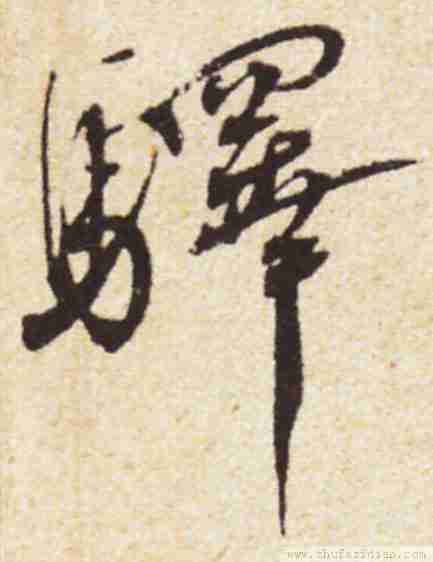 驛
www.shufazidian.com